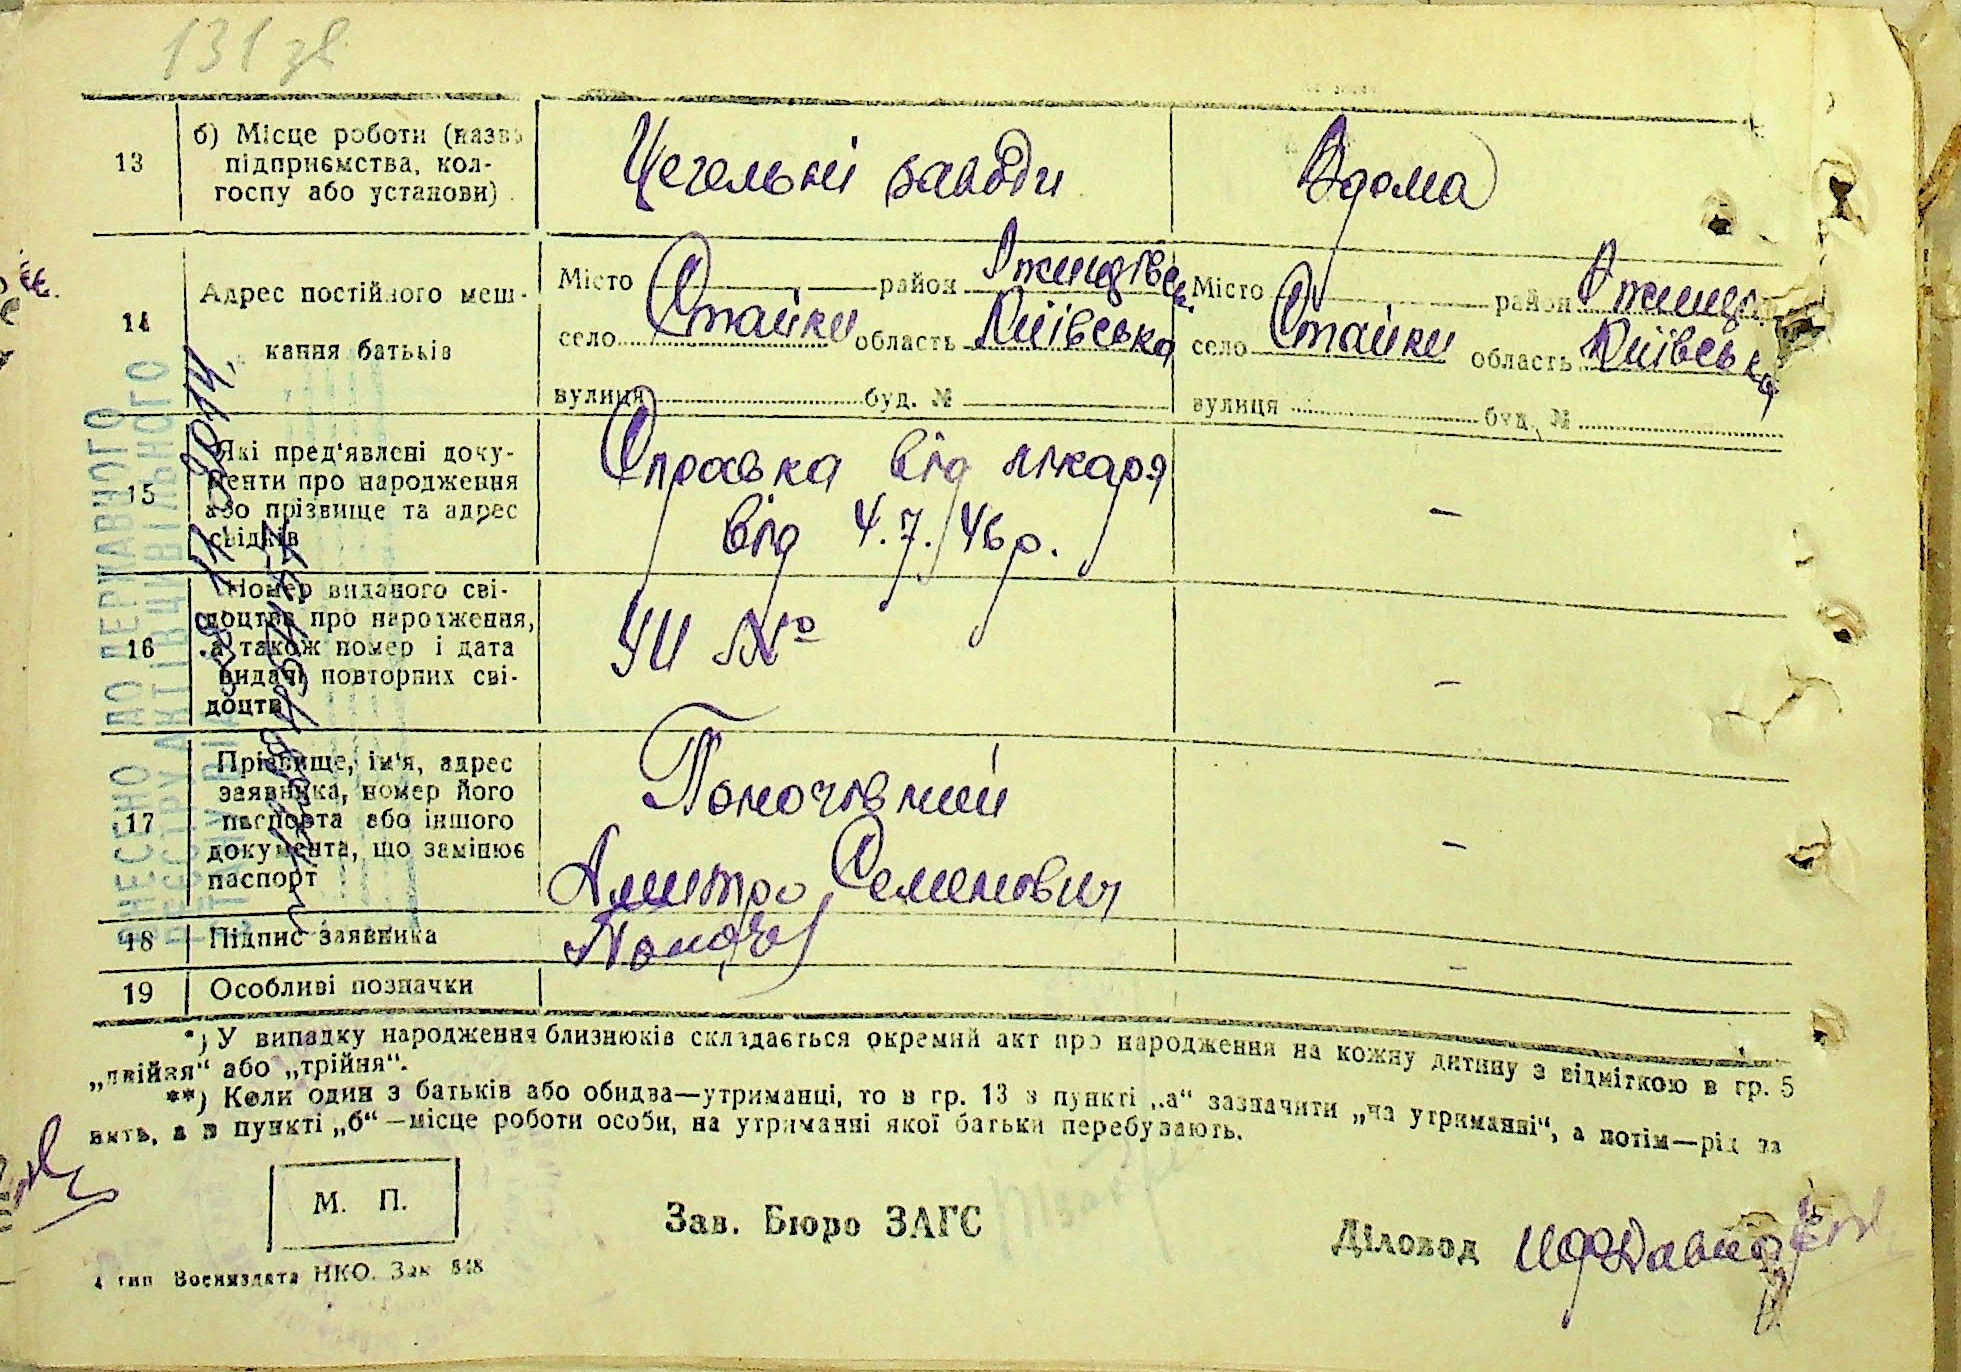 131 зв
13
б) Місце роботи (назва підприємства, колгоспу або установи)
Цегельні заводи
Вдома
14
Адрес постійного мешкання батьків
Місто район Ржищівськ.
село Стайки область Київська
вулиця буд. №
Місто район Ржищ.
село Стайки область Київська
вулиця буд. №
15
Які пред'явлені документи про народження або прізвище та адрес свідків
Справка від лікаря
від 4.7.46 р.
–
16
Номер виданого свідоцтва про народження, а також номер і дата видачі повторних свідоцтв
УИ №
–
17
Прізвище, ім'я, адрес заявника, номер його паспорта або іншого документа, що замінює паспорт
Помочівний
Дмитро Семенович
–
18
Підпис заявника
–
19
Особливі позначки
ВНЕСЕНО ДО ДЕРЖАВНОГО
РЕЄСТРУ АКТІВ ЦИВІЛЬНОГО
*) У випадку народження близнюків складається окремий акт про народження на кожну дитину з відміткою в гр. 5
„двійня“ або „трійня“.
**) Коли один з батьків або обидва—утриманці, то в гр. 13 в пункті „а“ зазначити „на утриманні“, а потім—рід за
нять, а в пункті „б“—місце роботи особи, на утриманні якої батьки перебувають.
М. П.
Зав. Бюро ЗАГС
Діловод
4 тип Воениздата НКО. Зак 848